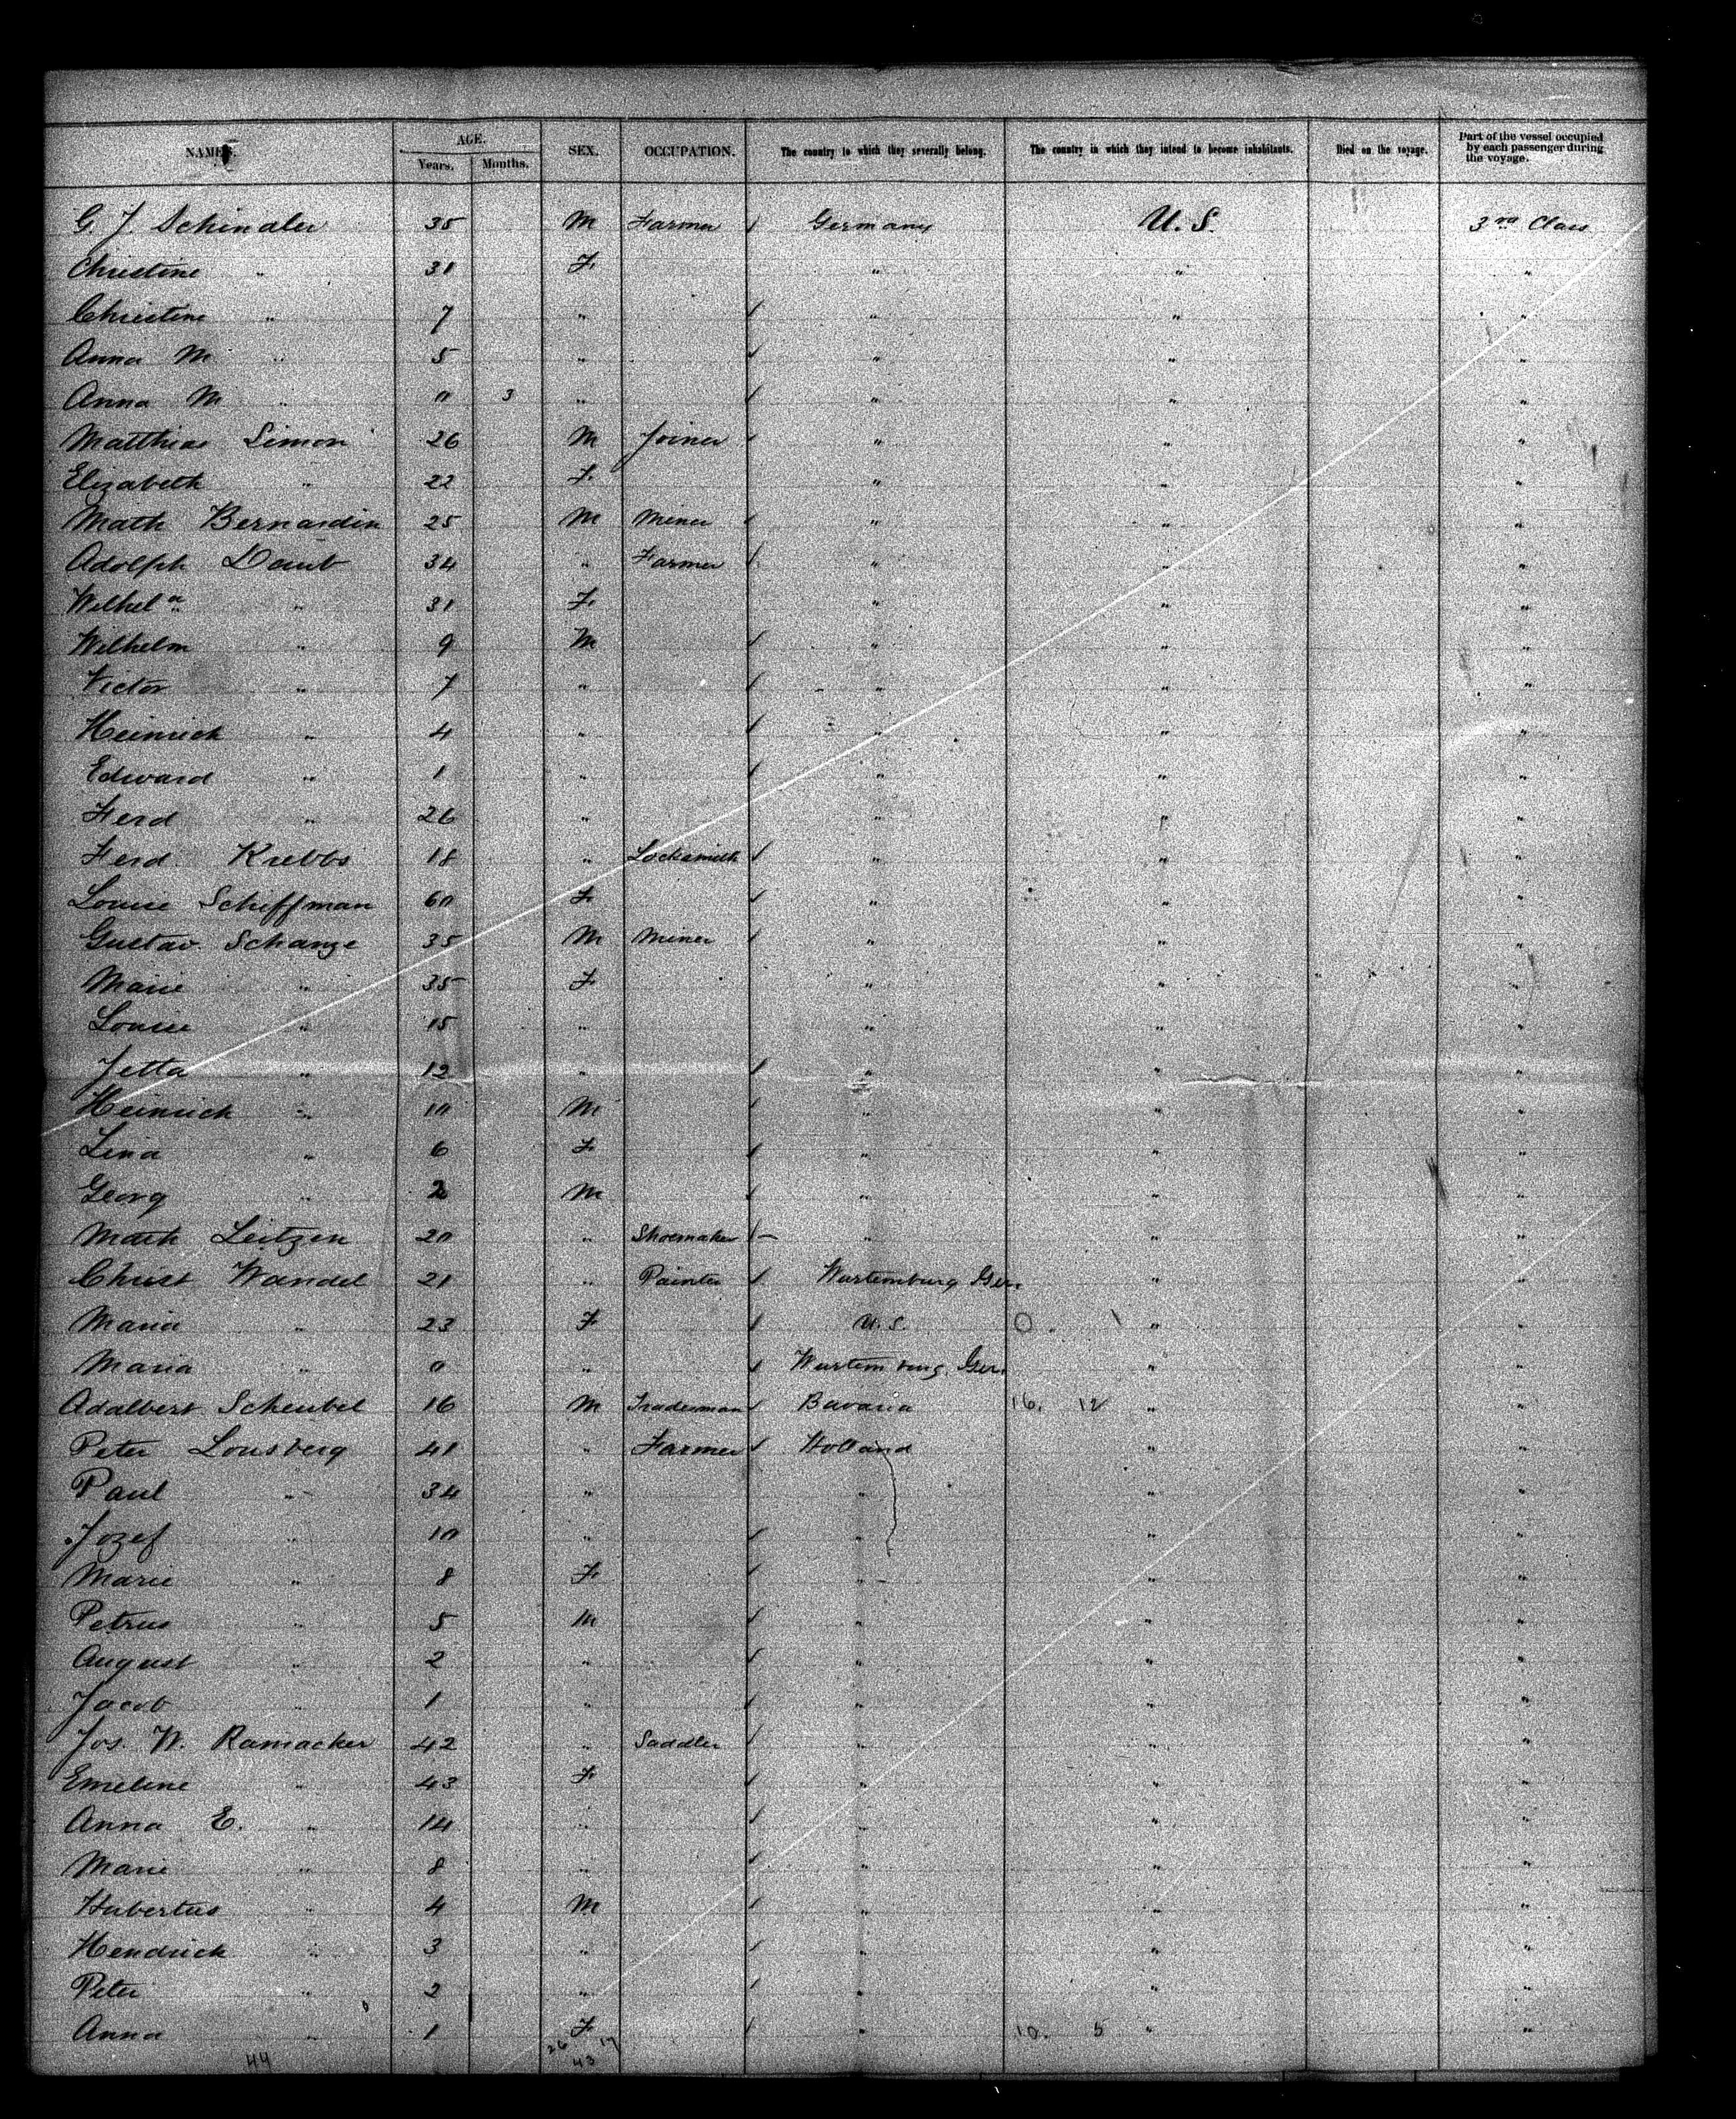 NAMES. AGE. Years. Months. SEX. OCCUPATION. The country to which they severally belong. The country in which they intend to become inhabitants. Died on the voyage. Part of the vessel occupied by each passenger during the voyage.
G. J. Schindler 35 M Farmer Germany U.S. 3rd Class
Christine " 31 F. " " "
Christine " 7 " " " "
Anna M " 5 " " " "
Anna M " 0 3 " " " "
Matthias Simon 26 M Joiner " " "
Elizabeth " 22 F. " " "
Math Bernardin 25 M Miner " " "
Adolph Daub 34 " Farmer " " "
Wilhel a " 31 F. " " "
Wilhelm " 9 M " " "
Victor " 7 " " " "
Heinrich " 4 " " " "
Edward " 1 " " " "
Ferd " 26 " " " "
Ferd. Krebbs 18 " Locksmith " " "
Louise Schiffman 60 F " " "
Gustav. Schange 35 M Miner " " "
Marie " 35 F " " "
Louise " 15 " " " "
Jetta " 12 " " " "
Heinrich " 10 M " " "
Lina " 6 F " " "
Georg " 2 M " " "
Math Leitzen 20 " Shoemaker " " "
Christ Wandel 21 " Painter Wurtemburg Ger. " "
Maria " 23 F U.S. " "
Maria " 0 " Wurtemburg. Ger. " "
Adalbert Scheubel 16 M Tradesman Bavaria 16. 12 " "
Peter Lousberg 41 " Farmer Holland " "
Paul " 34 " " " "
Jozef " 10 " " " "
Marie " 8 F " " "
Petrus " 5 M " " "
August " 2 " " " "
Jacob " 1 " " " "
Jos. W. Ramacker 42 " Saddler " " "
Emeline " 43 F " " "
Anna E. " 14 " " " "
Marie " 8 " " " "
Hubertus " 4 M " " "
Hendrick " 3 " " " "
Peter " 2 " " " "
Anna " 1 F " 10. 5 " "
26 17
44 43